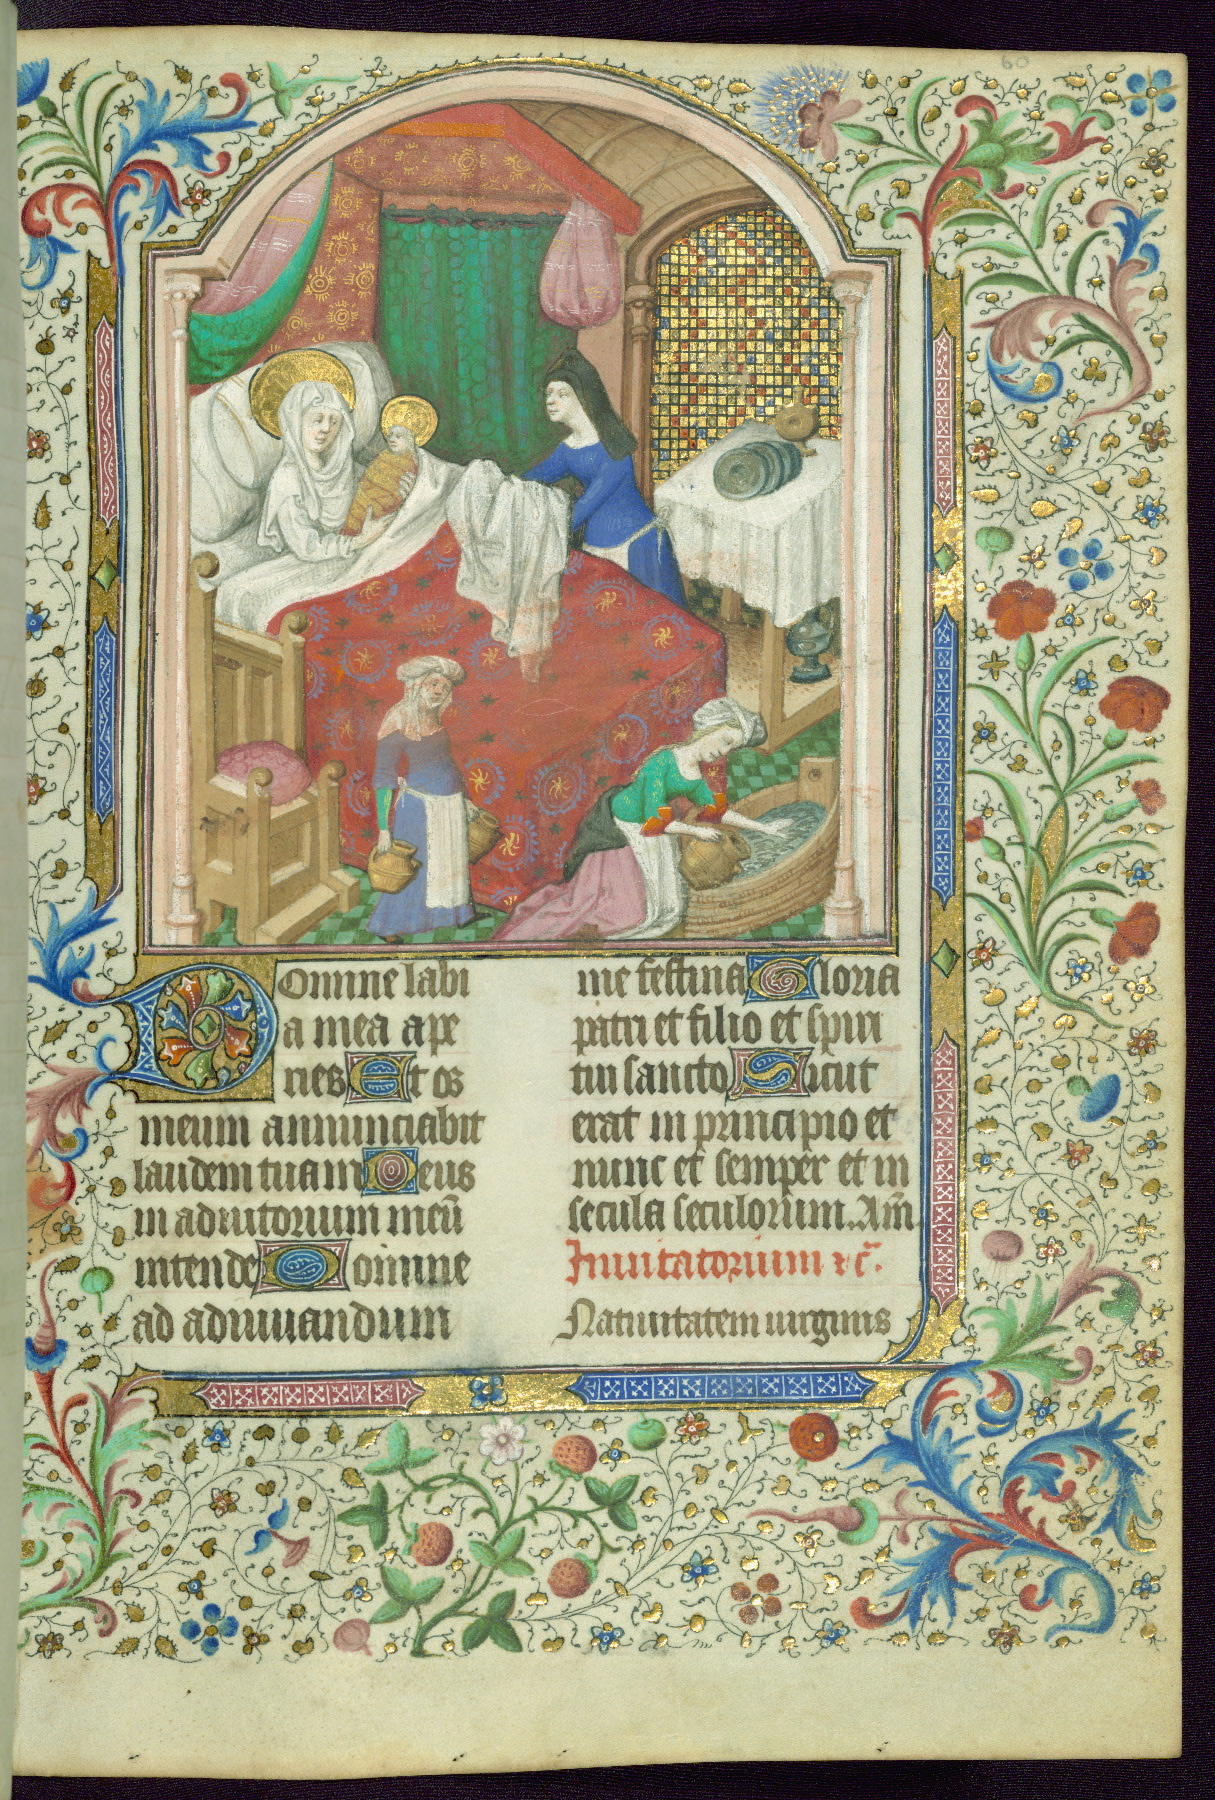 60
Domine labi
a mea ape
ries Et os
meum annunciabit
laudem tuam Deus
in adiutorium meū
intende Domine
ad adiuuandum
me festina Gloria
patri et filio et spiri
tui sancto Sicut
erat in principio et
nunc et semper et in
secula seculorum. Am̄
Inuitatorium
Natiuitatem uirginis